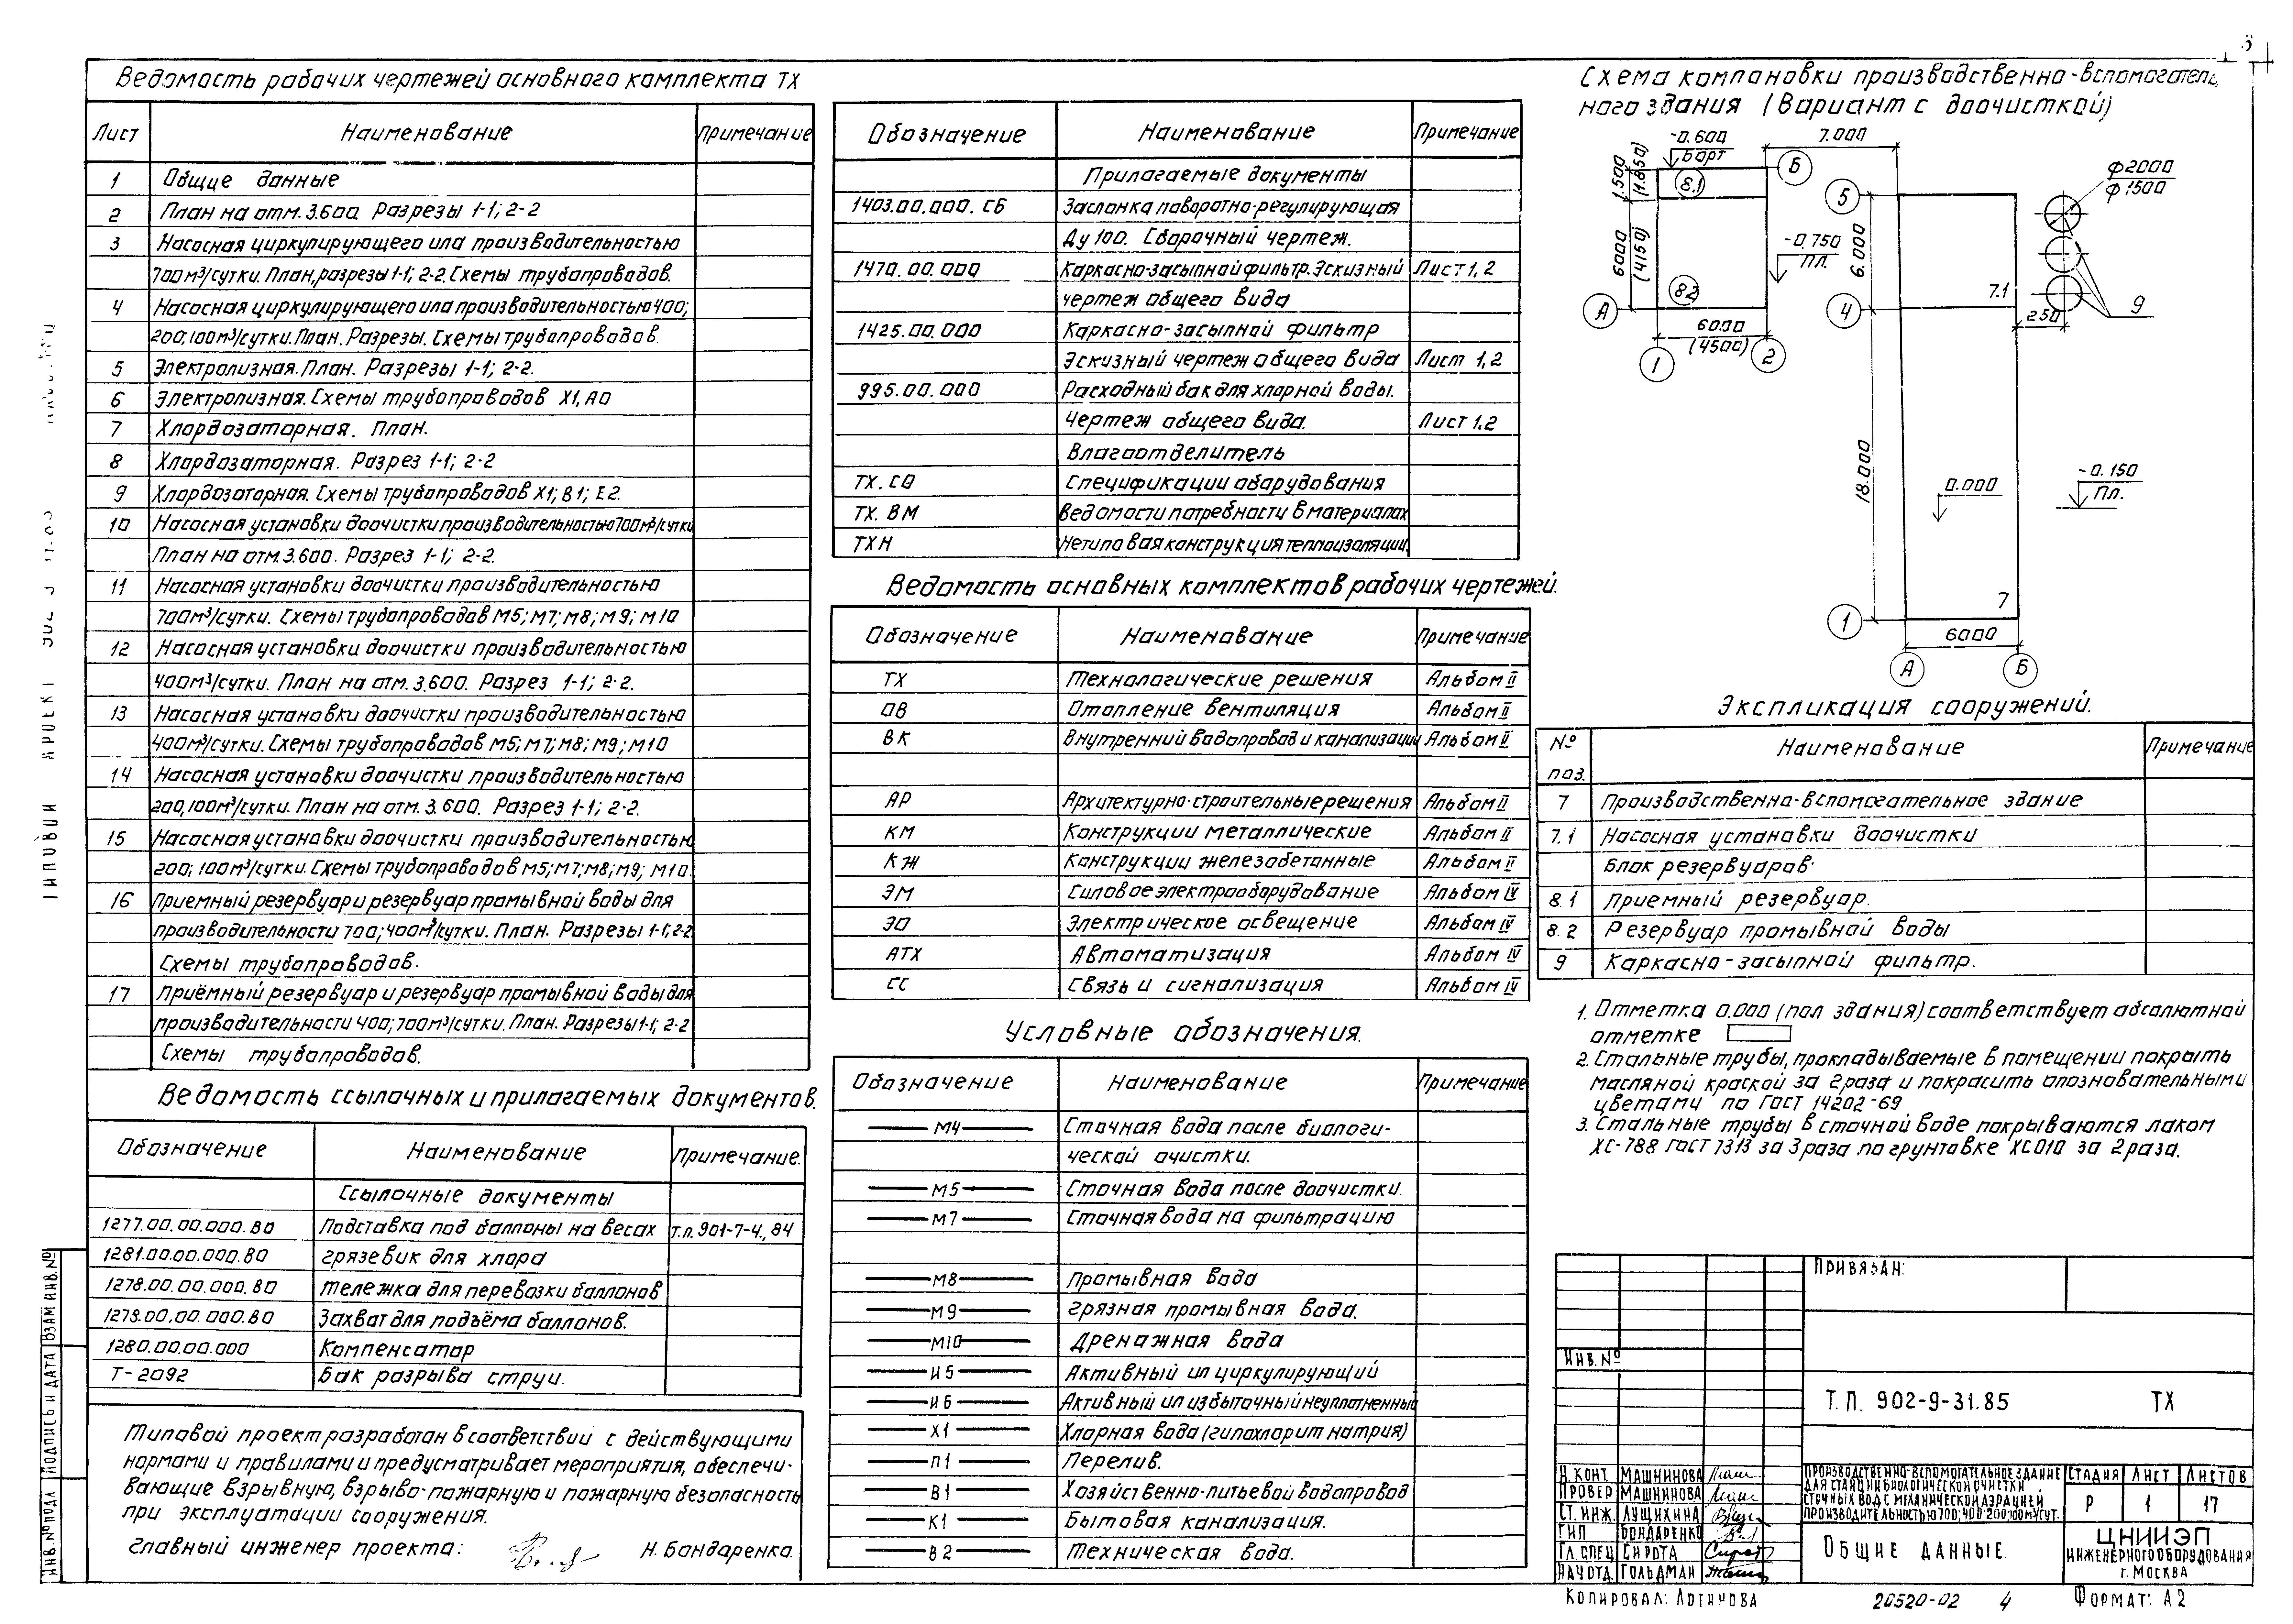 3
Ведомость рабочих чертежей основного комплекта ТХ
Лист Наименование Примечание
1 Общие данные
2 План на отм. 3.600. Разрезы 1-1; 2-2
3 Насосная циркулирующего ила производительностью
700м³/сутки. План, разрезы 1-1; 2-2. Схемы трубопроводов.
4 Насосная циркулирующего ила производительностью 400;
200; 100м³/сутки. План. Разрезы. Схемы трубопроводов.
5 Электролизная. План. Разрезы 1-1; 2-2.
6 Электролизная. Схемы трубопроводов Х1, А0
7 Хлордозаторная. План.
8 Хлордозаторная. Разрез 1-1; 2-2
9 Хлордозаторная. Схемы трубопроводов Х1; В1; Е2.
10 Насосная установки доочистки производительностью 700м³/сутки
План на отм. 3.600. Разрез 1-1; 2-2.
11 Насосная установки доочистки производительностью
700м³/сутки. Схемы трубопроводов М5; М7; М8; М9; М10
12 Насосная установки доочистки производительностью
400м³/сутки. План на отм. 3.600. Разрез 1-1; 2-2.
13 Насосная установки доочистки производительностью
400м³/сутки. Схемы трубопроводов М5; М7; М8; М9; М10
14 Насосная установки доочистки производительностью
200,100м³/сутки. План на отм. 3.600. Разрез 1-1; 2-2.
15 Насосная установки доочистки производительностью
200; 100м³/сутки. Схемы трубопроводов М5; М7; М8; М9; М10.
16 Приемный резервуар и резервуар промывной воды для
производительности 700; 400м³/сутки. План. Разрезы 1-1; 2-2
Схемы трубопроводов.
17 Приёмный резервуар и резервуар промывной воды для
производительности 400; 700м³/сутки. План. Разрезы 1-1; 2-2
Схемы трубопроводов.
Ведомость ссылочных и прилагаемых документов.
Обозначение Наименование Примечание.
Ссылочные документы
1277.00.00.000.ВО Подставка под баллоны на весах т.п. 901-7-4., 84
1281.00.00.000.ВО грязевик для хлора
1278.00.00.000.ВО Тележка для перевозки баллонов
1273.00.00.000.ВО Захват для подъёма баллонов.
1280.00.00.000 Компенсатор
Т-2092 Бак разрыва струи.
Типовой проект разработан в соответствии с действующими
нормами и правилами и предусматривает мероприятия, обеспечи-
вающие взрывную, взрыво-пожарную и пожарную безопасность
при эксплуатации сооружения.
главный инженер проекта: Н. Бондаренко.
Обозначение Наименование Примечание
Прилагаемые документы
1403.00.000.СБ Заслонка поворотно-регулирующая
Ду 100. Сборочный чертеж.
1470.00.000 Каркасно-засыпной фильтр. Эскизный Лист 1, 2
чертеж общего вида
1425.00.000 Каркасно-засыпной фильтр
Эскизный чертеж общего вида Лист 1,2
995.00.000 Расходный бак для хлорной воды.
Чертеж общего вида. Лист 1.2
Влагоотделитель
ТХ. СО Спецификации оборудования
ТХ. ВМ Ведомости потребности в материалах
ТХН Нетиповая конструкция теплоизоляции.
Ведомость основных комплектов рабочих чертежей.
Обозначение Наименование Примечание
ТХ Технологические решения Альбом II
ОВ Отопление вентиляция Альбом II
ВК Внутренний водопровод и канализации Альбом II
АР Архитектурно-строительные решения Альбом II
КМ Конструкции металлические Альбом II
КЖ Конструкции железобетонные Альбом II
ЭМ Силовое электрооборудование Альбом IV
ЭО Электрическое освещение Альбом IV
АТХ Автоматизация Альбом IV
СС Связь и сигнализация Альбом IV
Условные обозначения.
Обозначение Наименование Примечание
М4 Сточная вода после биологи-
ческой очистки.
М5 Сточная вода после доочистки.
М7 Сточная вода на фильтрацию
М8 Промывная вода
М9 грязная промывная вода.
М10 Дренажная вода
И5 Активный ил циркулирующий
И6 Активный ил избыточный неуплотненный
Х1 Хлорная вода (гипохлорит натрия)
П1 Перелив.
В1 Хозяйственно-питьевой водопровод
К1 Бытовая канализация.
В2 Техническая вода.
Схема компановки производственно-вспомогатель
ного здания (Вариант с доочисткой)
-0.600
Борт
7.000
1.500
(1.850)
8.1
Б
5
ф2000
ф1500
6000
(4150)
-0.750
Пл.
6.000
8.2
А
7.1
4
9
250
6000
(4500)
1
2
18.000
0.000
-0.150
Пл.
7
1
6000
А
Б
Экспликация сооружений.
№ поз. Наименование Примечание
7 Производственно-вспомогательное здание
7.1 Насосная установки доочистки
Блок резервуаров
8.1 Приемный резервуар.
8.2 Резервуар промывной воды
9 Каркасно-засыпной фильтр.
1. Отметка 0.000 (пол здания) соответствует абсолютной
отметке
2. Стальные трубы, прокладываемые в помещении покрыть
масляной краской за 2 раза и покрасить опозновательными
цветами по ГОСТ 14202-69
3. Стальные трубы в сточной воде покрываются лаком
ХС-788 ГОСТ 7313 за 3 раза по грунтовке ХС010 за 2 раза.
Привязан:
Инв. №
Т.П. 902-9-31.85 ТХ
Н. КОНТ. МАШНИНОВА
ПРОВЕР МАШНИНОВА
СТ. ИНЖ. ЛУЩИХИНА
ГИП БОНДАРЕНКО
ГЛ. СПЕЦ СИРОТА
НАЧ ОТД. ГОЛЬДМАН
ПРОИЗВОДСТВЕННО-ВСПОМОГАТЕЛЬНОЕ ЗДАНИЕ
ДЛЯ СТАНЦИИ БИОЛОГИЧЕСКОЙ ОЧИСТКИ
СТОЧНЫХ ВОД С МЕХАНИЧЕСКОЙ АЭРАЦИЕЙ
ПРОИЗВОДИТЕЛЬНОСТЬЮ 700; 400 200 100м³/СУТ.
СТАДИЯ ЛИСТ ЛИСТОВ
Р 1 17
ОБЩИЕ ДАННЫЕ.
ЦНИИЭП
ИНЖЕНЕРНОГО ОБОРУДОВАНИЯ
г. МОСКВА
КОПИРОВАЛ: ЛОГИНОВА
20520-02 4
ФОРМАТ: А2
ТИПОВОЙ ПРОЕКТ
ВЗАМ ИНВ. №
ПОДПИСЬ И ДАТА
ИНВ. № ПОДЛ